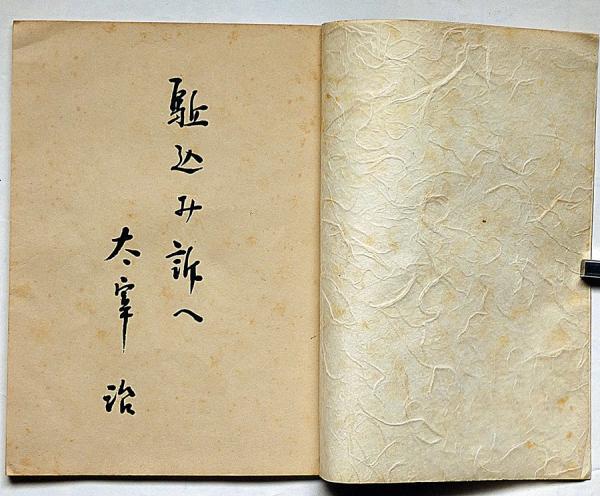 駈込み訴へ
太宰治